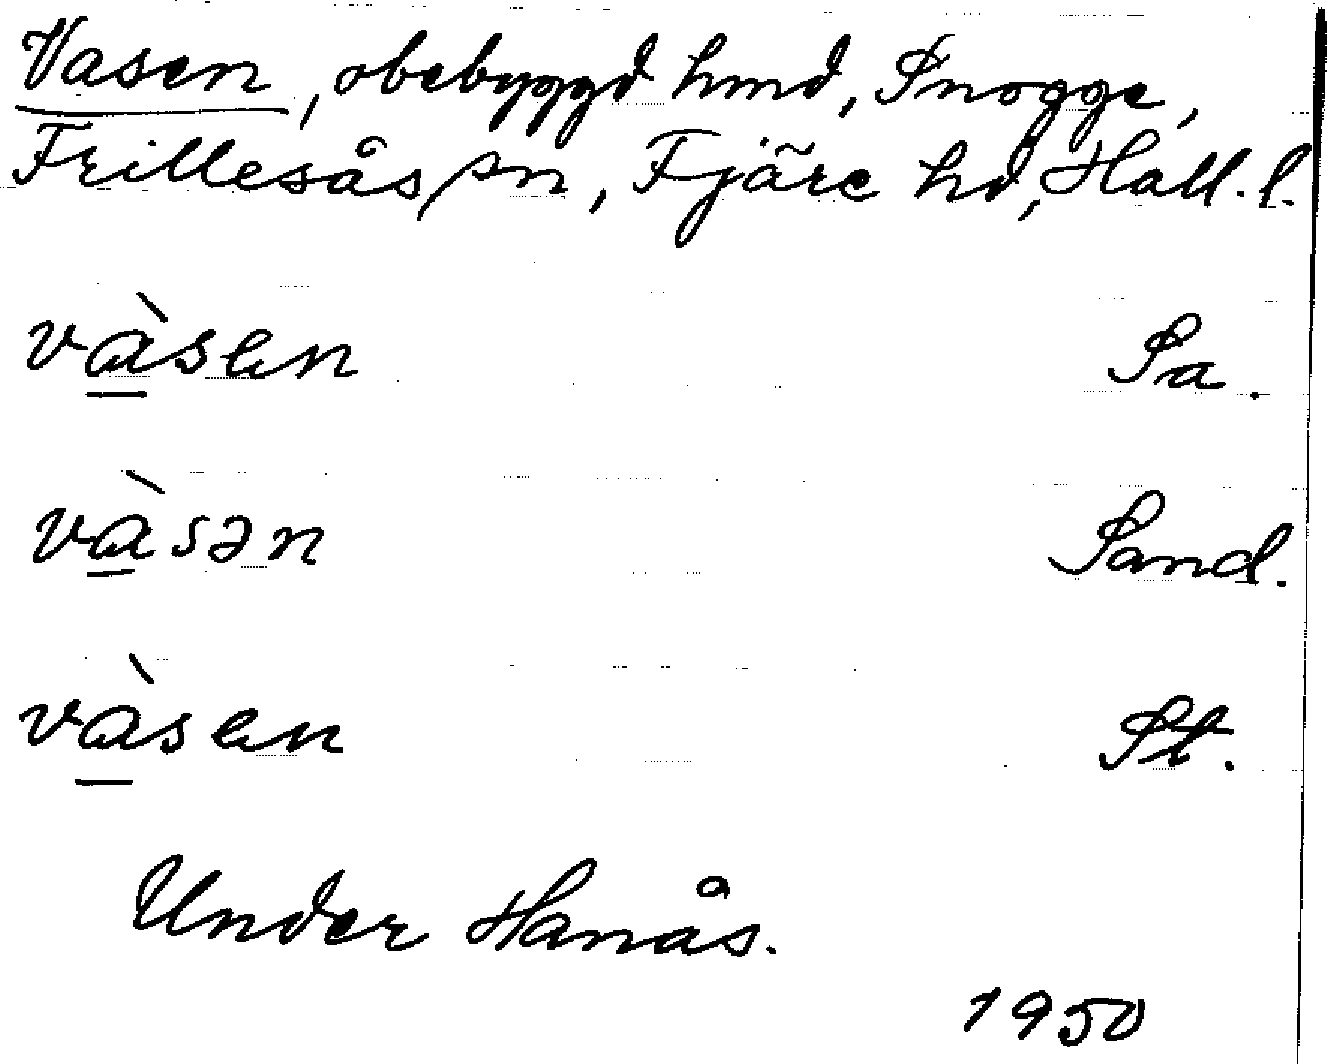 Vasen, obebyggd hmd, Snogge,
Frillesås sn, Fjäre hd, Hall. l.
và̱sen Sa.
và̱sən Sand.
và̱sen St.
Under Hanås.
1950